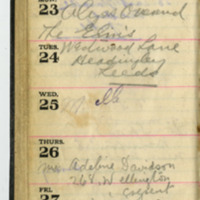 MON.
23
The Elms
TUES.
24
Westwood Lane
Headingley
Leeds
WED.
25
THURS.
26
Mrs Adeline Davidson
268 Wellington
Crescent
FRI.
27